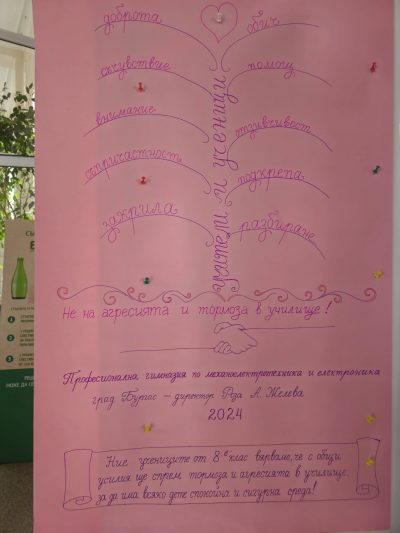 доброта
обич
съчувствие
помощ
внимание
отзивчивост
съпричастност
подкрепа
закрила
разбиране
учители и ученици
Не на агресията и тормоза в училище!
Професионална гимназия по механоелектротехника и електроника
град Бургас – директор Роза А. Желева
2024
Ние учениците от 8 е клас вярваме, че с общи
усилия ще спрем тормоза и агресията в училище,
за да има всяко дете спокойна и сигурна среда!